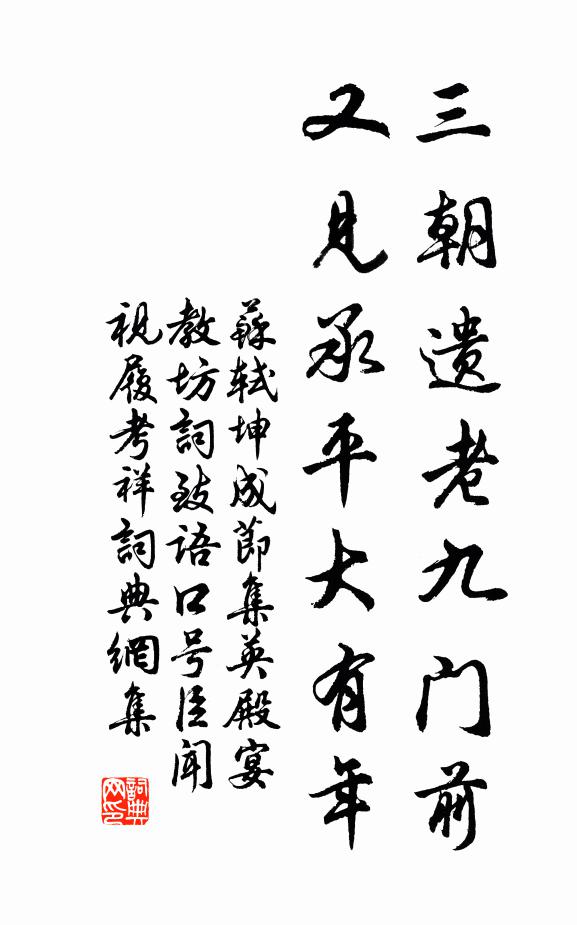 三朝遗老九门前
又见承平大有年
蘇軾坤成節集英殿宴
教坊詞致语口号臣闻
視履考祥詞典網集
詞典网印